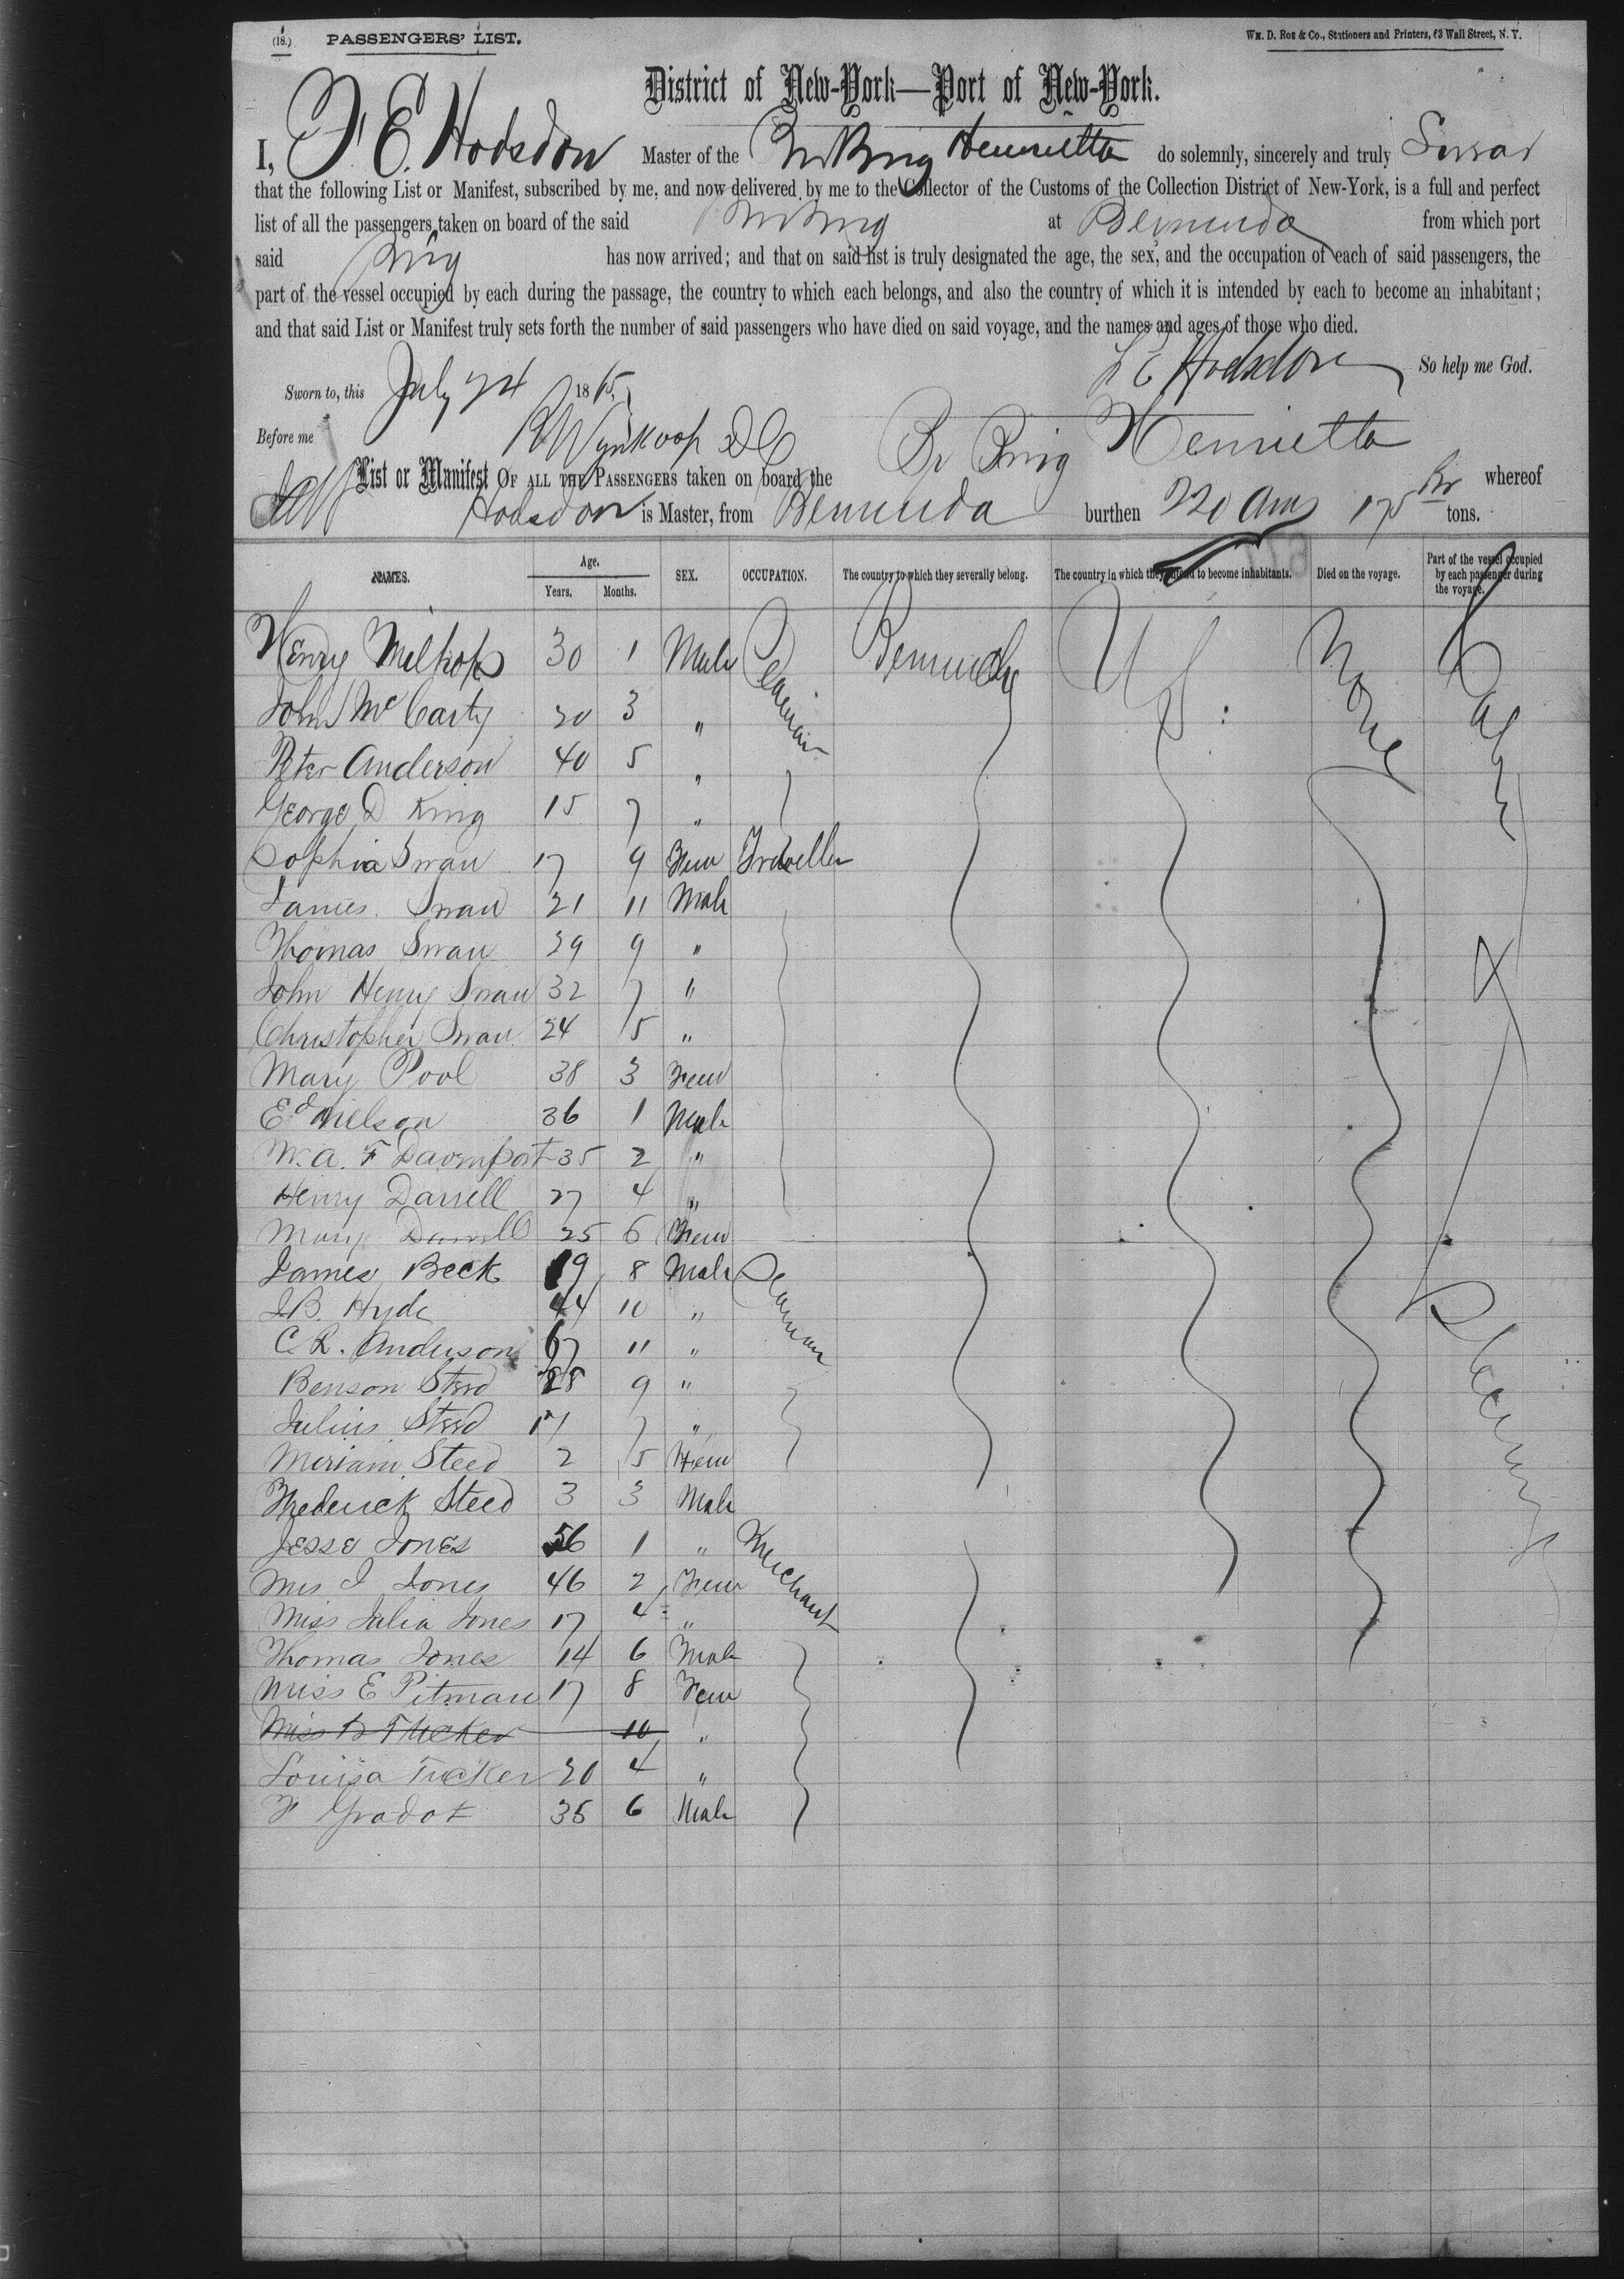 (18.) PASSENGERS' LIST. WM. D. ROE & CO., Stationers and Printers, 63 Wall Street, N. Y.
District of New-York—Port of New-York.
I, F. E. Hodsdon Master of the Br Brig Henrietta do solemnly, sincerely and truly Swear
that the following List or Manifest, subscribed by me, and now delivered by me to the Collector of the Customs of the Collection District of New-York, is a full and perfect
list of all the passengers taken on board of the said Br Brig at Bermuda from which port
said Brig has now arrived; and that on said list is truly designated the age, the sex, and the occupation of each of said passengers, the
part of the vessel occupied by each during the passage, the country to which each belongs, and also the country of which it is intended by each to become an inhabitant;
and that said List or Manifest truly sets forth the number of said passengers who have died on said voyage, and the names and ages of those who died.
F E Hodsdon So help me God.
Sworn to, this July 24 1865
Before me R Wynkoop D C
List or Manifest OF ALL THE PASSENGERS taken on board the Br Brig Henrietta whereof
Hodsdon is Master, from Bermuda burthen 220 Ams 175 Br tons.
NAMES. Age. Years. Months. SEX. OCCUPATION. The country to which they severally belong. The country in which they intend to become inhabitants. Died on the voyage. Part of the vessel occupied by each passenger during the voyage.
Henry 30 1 Male Seaman Bermuda U S: None Cabin
John McCarty 20 3 "
Peter Anderson 40 5 "
George D King 15 7 "
Sophia Swan 17 9 Fem Traveller
James Swan 21 11 Male
Thomas Swan 29 9 "
John Henry Swan 32 7 "
Christopher Swan 24 5 "
Mary Pool 38 3 Fem
Ed Nelson 36 1 Male
W. A. F Davenport 35 2 "
Henry Darrell 27 4 "
Mary Darrell 25 6 Fem
James Beck 19 8 Male Seaman
J B. Hyde 44 10 "
C. R. Anderson 67 11 " Steerage
Benson Steed 28 9 "
Julius Steed 7 "
Miriam Steed 2 5 Fem
Frederick Steed 3 3 Male
Jesse Jones 56 1 " Merchant
Mrs J Jones 46 2 Fem
Miss Julia Jones 17 4 "
Thomas Jones 14 6 Male
Miss E Pitman 17 8 Fem
Miss Tucker 10 "
Louisa Tucker 20 4 "
F Gradot 35 6 Male